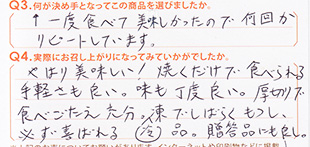 Q3.何が決め手となってこの商品を選びましたか。
↑一度食べて美しかったので何回か
リピートしています。
Q4.実際にお召し上がりになってみていかがでしたか。
やはり美味しい！焼くだけで食べられる
手軽さも良い。味も丁度良い。厚切りで
食べごたえ充分。凍でしばらくもつし、
※必ず喜ばれる(冷)品。贈答品にも良し。